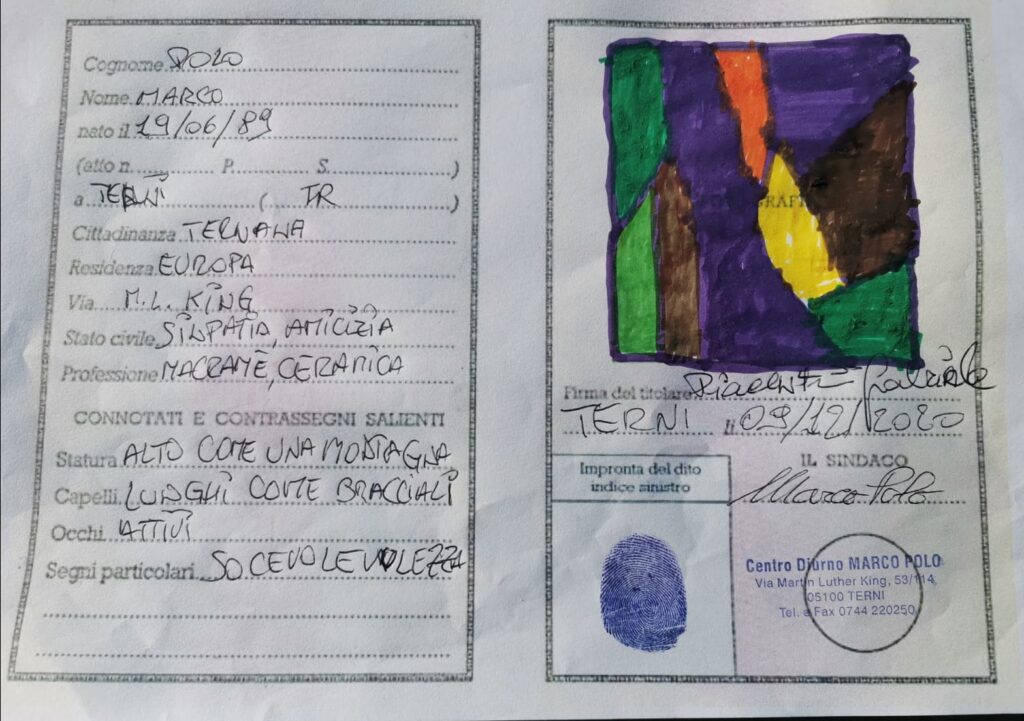 Cognome POLO
Nome MARCO
nato il 19/06/89
(atto n. P. S. )
a TERNI ( TR )
Cittadinanza TERNANA
Residenza EUROPA
Via M.L. KING
Stato civile SIMPATIA, AMICIZIA
Professione MACRAMÈ, CERAMICA
CONNOTATI E CONTRASSEGNI SALIENTI
Statura ALTO COME UNA MONTAGNA
Capelli LUNGHI COME BRACCIALI
Occhi ATTIVI
Segni particolari SOCEVOLEVOLEZZA
Firma del titolare Gabriele
TERNI li 09/12/2020
IL SINDACO
Marco Polo
Impronta del dito
indice sinistro
Centro Diurno MARCO POLO
Via Martin Luther King, 53/114
05100 TERNI
Tel. e Fax 0744 220250